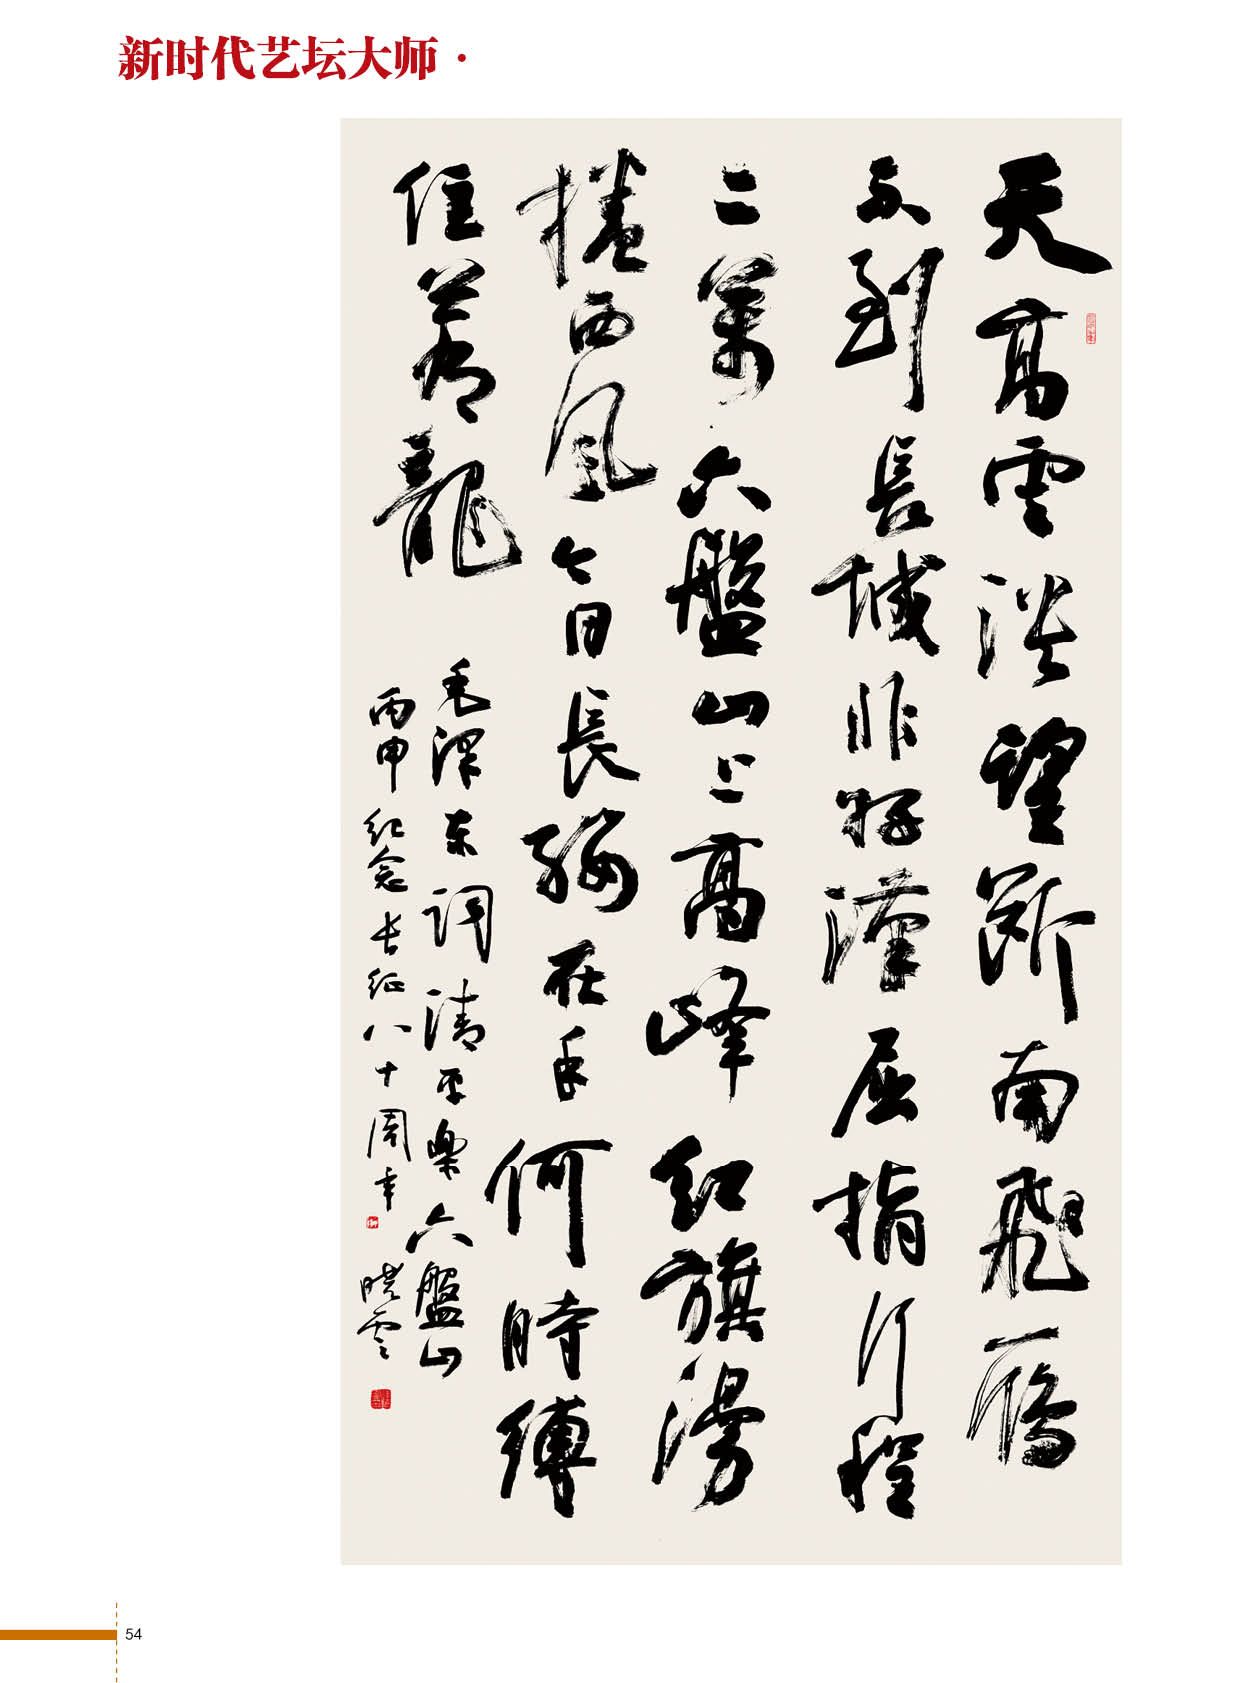 新时代艺坛大师·
天高雲淡望断南飛雁
不到長城非好漢屈指行程
二萬六盤山上高峰红旗漫
捲西風今日長纓在手何時縛
住蒼龍
毛澤东词清平樂六盤山
丙申纪念长征八十周年 晓雲
54